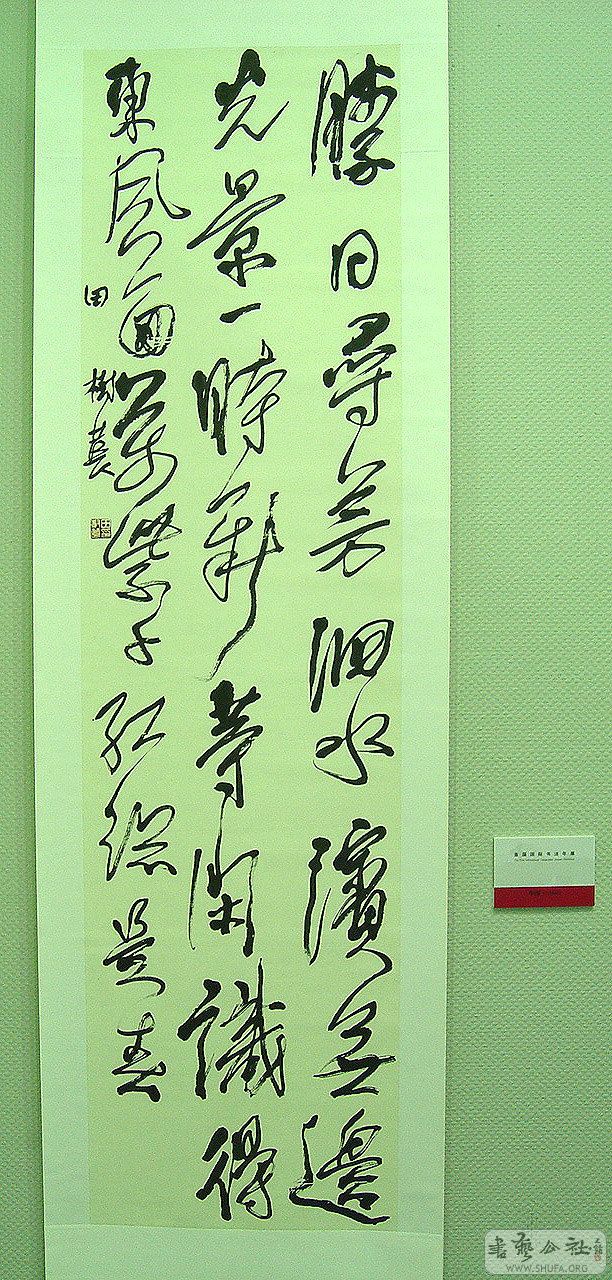 勝日尋芳泗水濱無邊
光景一時新等閑識得
東風面萬紫千紅總是春
田樹萇
首届国际书法年展
書藝公社
WWW.SHUFA.ORG